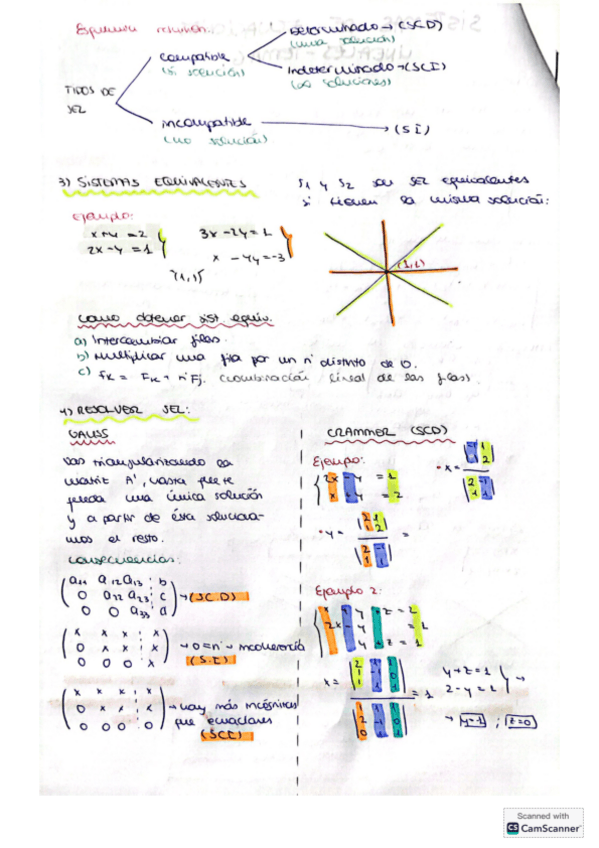 Esquema resumen:
TIPOS DE SEL
compatible
(sí solución)
Determinado → (SCD)
(una solución)
Indeterminado → (SCI)
(∞ soluciones)
incompatible
(no solución)
→ (SI)
3) SISTEMAS EQUIVALENTES
S1 y S2 son SEL equivalentes
si tienen la misma solución:
ejemplo:
x+y = 2
2x-y = 1
3x-2y = 1
x - 4y = -3
(1,1)
como obtener sist. equiv.
a) Intercambiar filas.
b) Multiplicar una fila por un nº distinto de 0.
c) FK = FK + nº Fj. (combinación lineal de las filas).
4) RESOLVER SEL:
GAUSS
vas triangularizando la
matriz A', hasta que te
queda una única solución
y a partir de ésta soluciona-
mos el resto.
consecuencias:
a11 a12 a13 b
0 a22 a23 c
0 0 a33 d
→ (SCD)
x x x x
0 x x x
0 0 0 x
→ 0 = nº → incoherencia
(S.I)
x x x x
0 x x x
0 0 0 0
→ hay más incógnitas
que ecuaciones
(SCI)
CRAMMER (SCD)
Ejemplo:
2x - y = 1
x + y = 2
• x =
2 -1
1 1
• y =
2 1
1 2
2 -1
1 1
=
Ejemplo 2:
2x - y = 1
y + z = 1
x =
= 1
y + z = 1
2 - y = 1
→
→ y=1 ; z=0
Scanned with
CS CamScanner